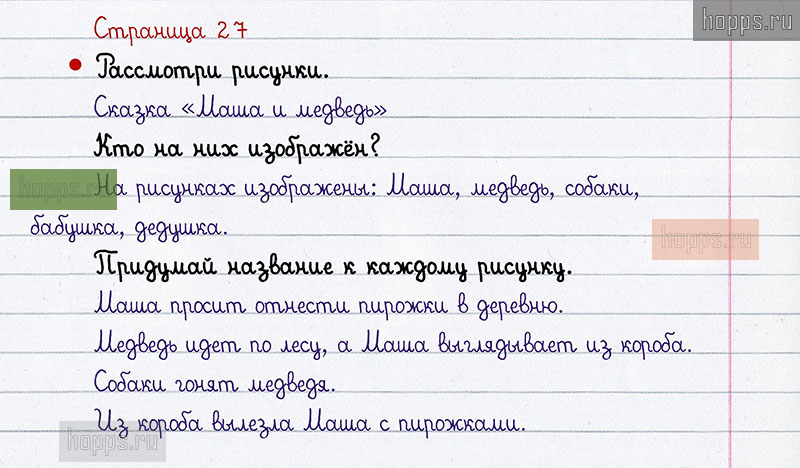 hopps.ru
Страница 27
Рассмотри рисунки.
Сказка «Маша и медведь»
Кто на них изображён?
hopps.ru
На рисунках изображены: Маша, медведь, собаки,
бабушка, дедушка.
hopps.ru
Придумай название к каждому рисунку.
Маша просит отнести пирожки в деревню.
Медведь идет по лесу, а Маша выглядывает из короба.
Собаки гонят медведя.
Из короба вылезла Маша с пирожками.
hopps.ru